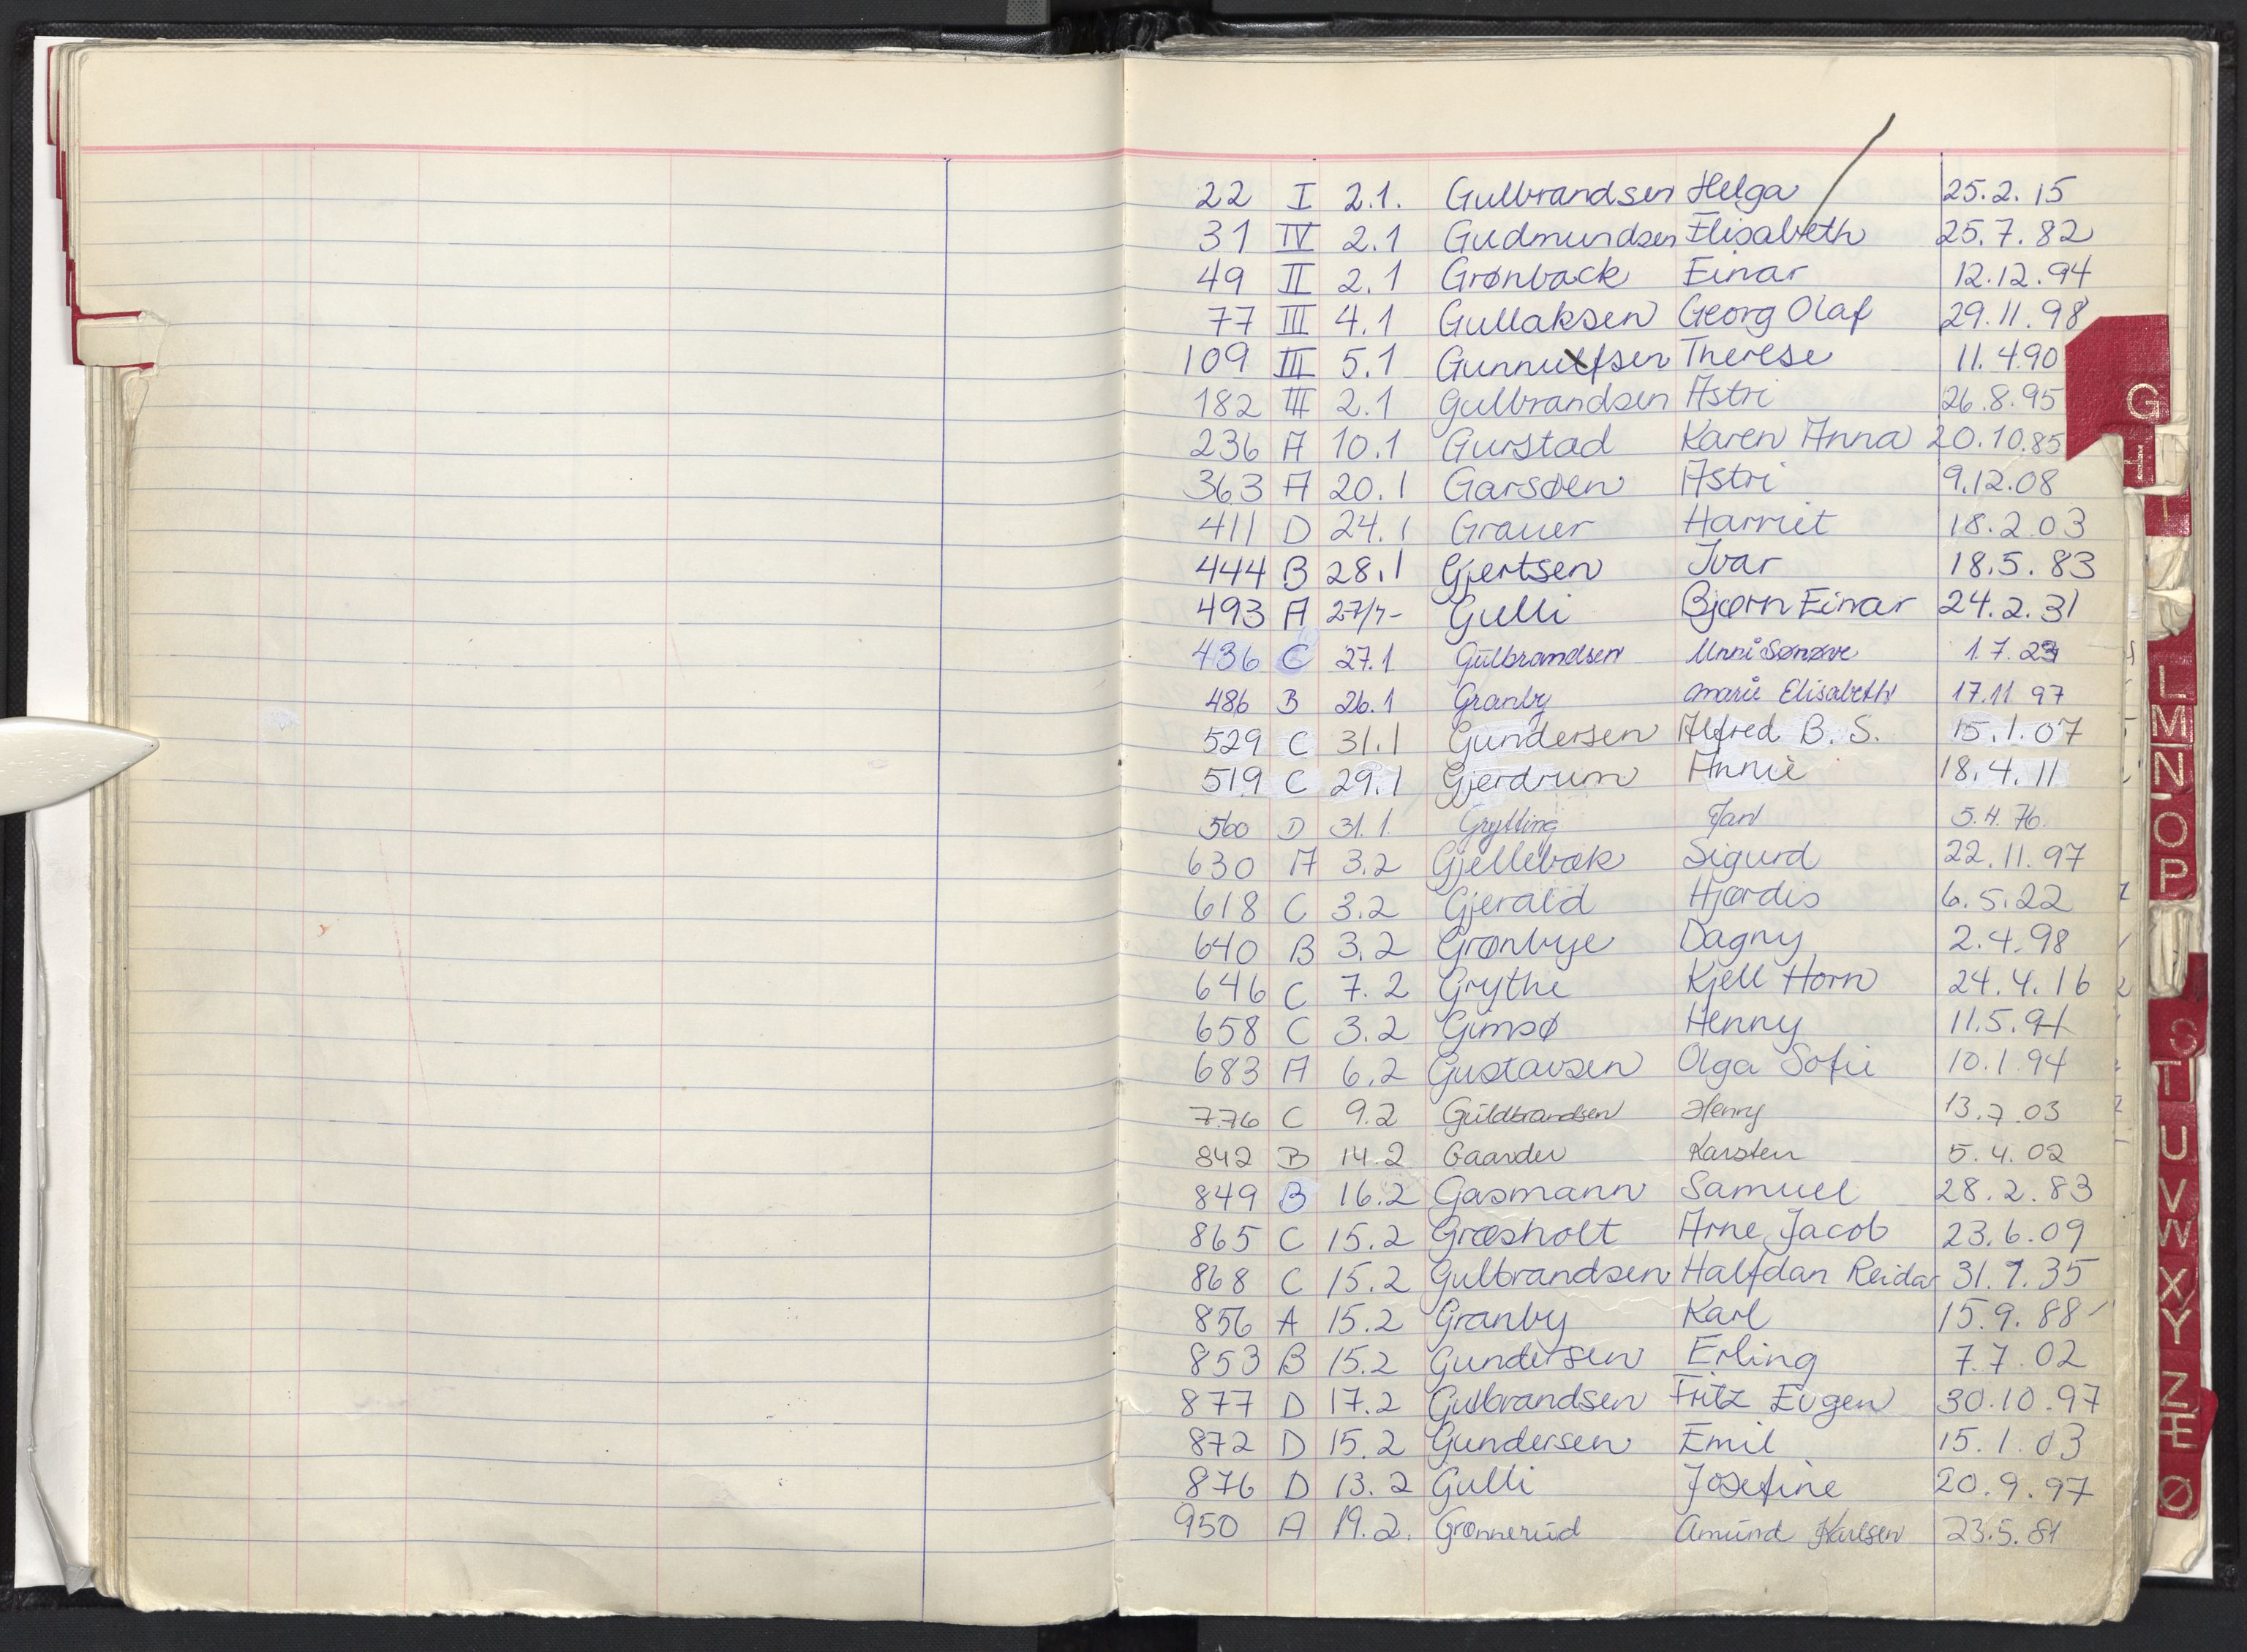 22 I 2.1. Gulbrandsen Helga 25.2.15
31 IV 2.1 Gudmundsen Elisabeth 25.7.82
49 II 2.1 Grønback Einar 12.12.94
77 III 4.1 Gullaksen Georg Olaf 29.11.98
109 III 5.1 Gunnulfsen Therese 11.4.90
182 III 2.1 Gulbrandsen Astri 26.8.95
236 A 10.1 Gurstad Karen Anna 20.10.85
363 A 20.1 Garsøen Astri 9.12.08
411 D 24.1 Grauer Harriet 18.2.03
444 B 28.1 Gjertsen Ivar 18.5.83
493 A 27/1- Gulli Bjørn Einar 24.2.31
436 C 27.1 Gulbrandsen Unni Sønøve 1.7.23
486 B 26.1 Granby Marie Elisabeth 17.11 97
529 C 31.1 Gundersen Alfred B. S. 15.1.07
519 C 29.1 Gjerdrum Annie 18.4.11
560 D 31.1. Grytting Jan 5.4.76.
630 A 3.2 Gjellebæk Sigurd 22.11.97
618 C 3.2 Gjerald Hjørdis 6.5.22
640 B 3.2 Grønbye Dagny 2.4.98
646 C 7.2 Grythe Kjell Horn 24.4.16
658 C 3.2 Gimsø Henny 11.5.91
683 A 6.2 Gustavsen Olga Sofie 10.1.94
776 C 9.2 Guldbrandsen Henry 13.7.03
842 B 14.2 Gaarder Karsten 5.4.02
849 B 16.2 Gasmann Samuel 28.2.83
865 C 15.2 Græsholt Arne Jacob 23.6.09
868 C 15.2 Gulbrandsen Halfdan Reidar 31.7.35
856 A 15.2 Granby Karl 15.9.88
853 B 15.2 Gundersen Erling 7.7.02
877 D 17.2 Gulbrandsen Fritz Eugen 30.10.97
872 D 15.2 Gundersen Emil 15.1.03
876 D 13.2 Gulli Josefine 20.9.97
950 A 19.2. Grønnerud Amund Karlsen 23.5.81
G
H
I
L
M
N
O
P
S
T
U
V
W
X
Y
Z
Æ
Ø